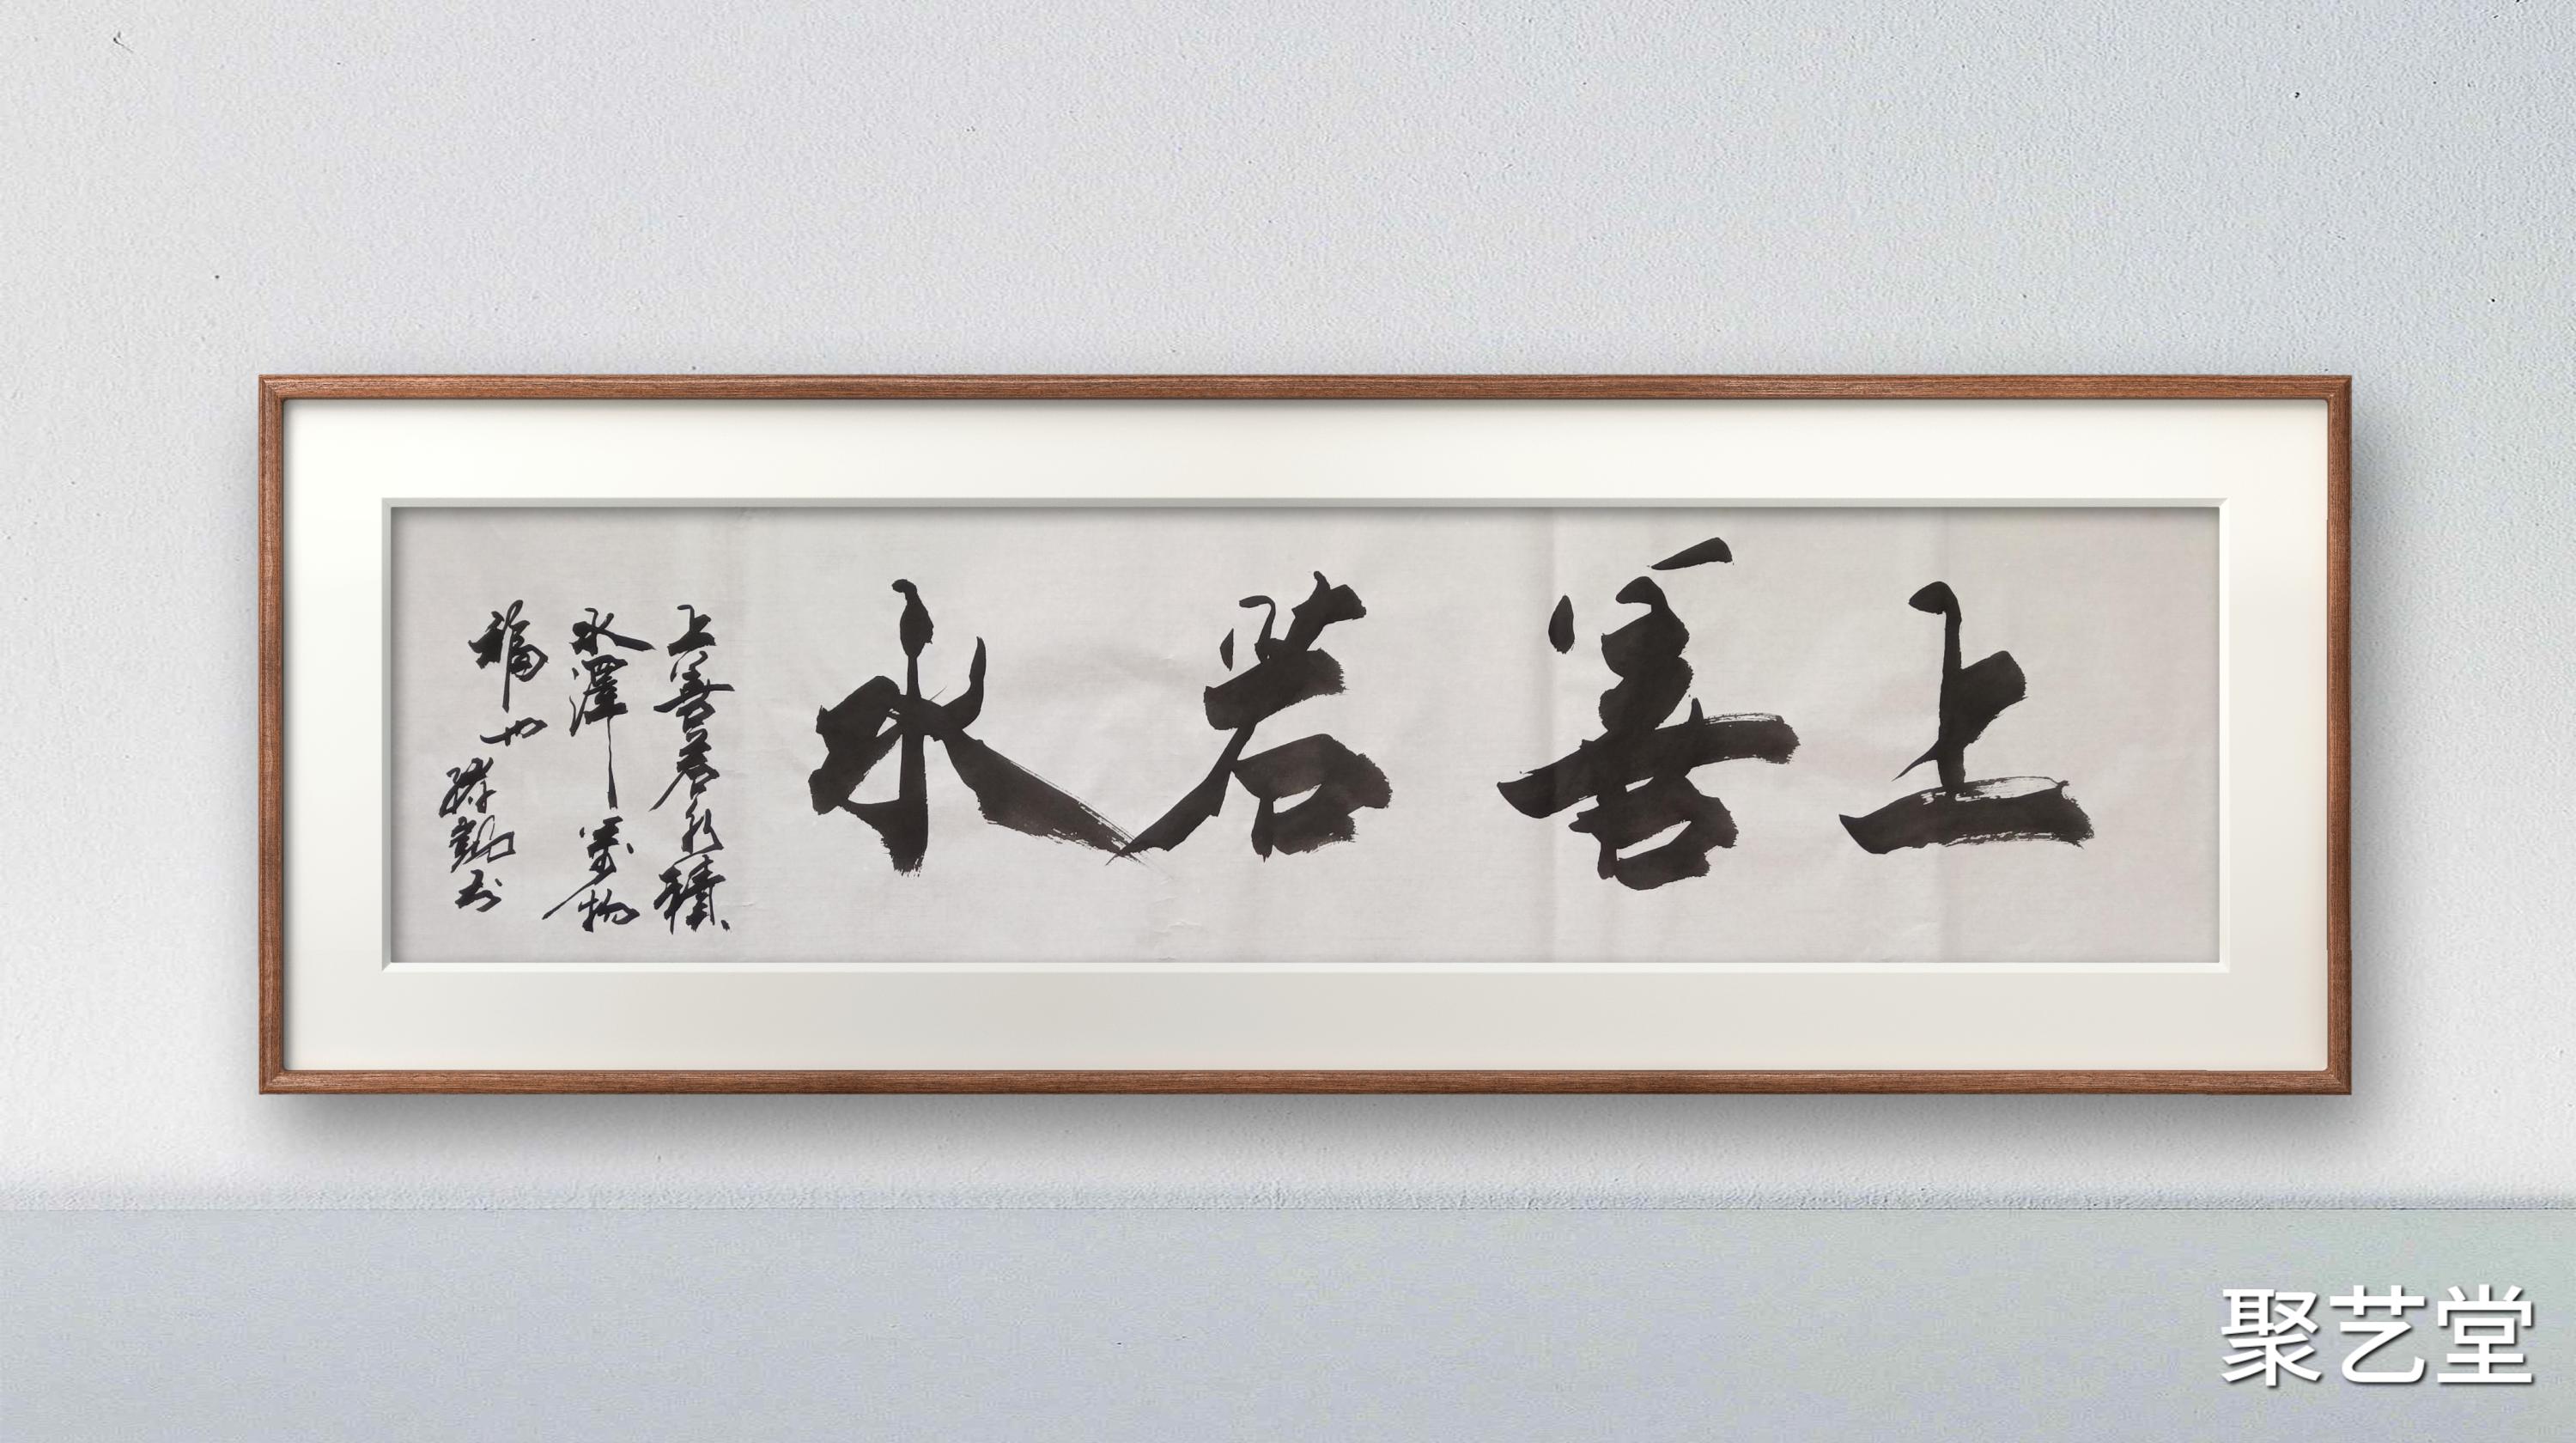 上善若水
上善若水積
水澤萬物
福也
聚艺堂